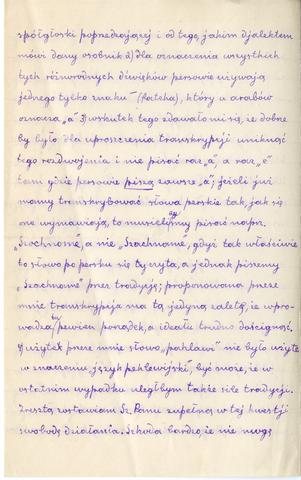 spółgłoski poprzedzającej i od tego, jakim djalektem
mówi dany osobnik 2) dla oznaczenia wszystkich
tych różnorodnych dźwięków persowie używają
jednego tylko znaku - (fatcha), który u arabów
oznacza „a" 3) wskutek tego zdawało mi się, że dobrze
by było dla uproszczenia transkrypcji uniknąć
tego rozdwojenia i nie pisać raz „a" a raz „e"
tam gdzie persowie piszą zawsze „a", jeżeli już
mamy transkrybować słowa perskie tak, jak się
one wymawiają, to musielibyśmy pisać napr.
„Szochnomé", a nie „Szachname", gdyż tak właściwie
to słowo po persku się czyta, a jednak piszemy
„Szachname" przez tradycję; proponowana przeze
mnie transkrypcja ma tę jedyną zaletę, że wpro-
wadza pewien porządek, a ideału trudno doścignąć.
4) użyte przeze mnie słowo „pahlawi" nie było użyte
w znaczeniu „język pehlewijski", być może, że w
ostatnim wypadku uległbym także sile tradycji.
Zresztą zostawiam Sz. Panu zupełną w tej kwestji
swobodę działania. Szkoda bardzo, że nie mogę